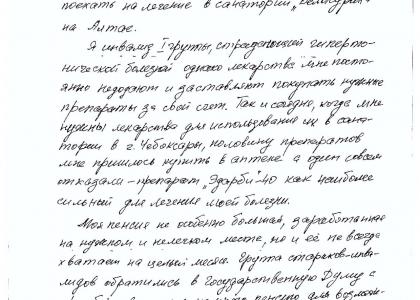 поехать на лечение в санаторий „Белокуриха"
на Алтае.
Я инвалид I группы, страдающий гиперто-
нической болезной однако лекарства мне посто-
янно недодают и заставляют покупать нужные
препараты за свой счет. Так и сегодня, когда мне
нужны лекарства для использования их в сана-
тории в г. Чебоксары, половину препаратов
мне пришлось купить в аптеке а один совсем
отказали – препарат „Эдарби"-40 как наиболее
сильный для лечения моей болезни.
Моя пенсия не особенно большая, заработанная
на нужном и нелегком месте, но и её не всегда
хватает на целый месяц. Группа стариков-инва-
лидов обратились в Государственную Думу с
пенсию для возмож-